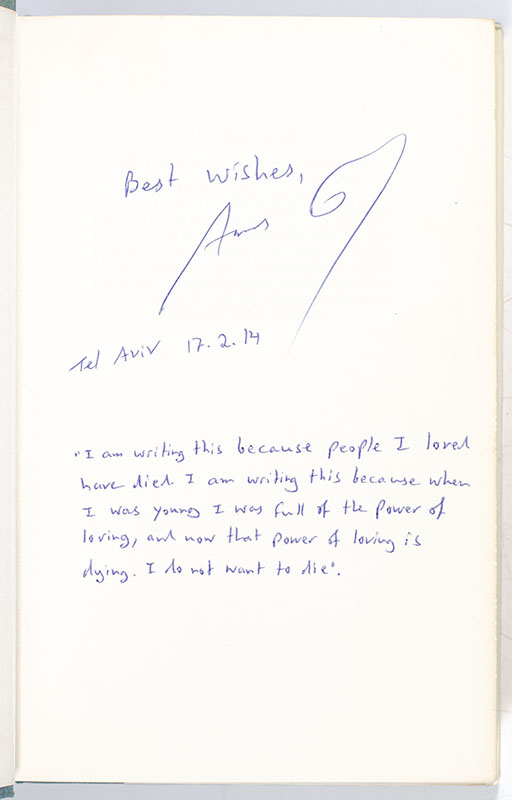 Best wishes,
Amos Oz
Tel Aviv 17.2.14
"I am writing this because people I loved
have died. I am writing this because when
I was young I was full of the power of
loving, and now that power of loving is
dying. I do not want to die".